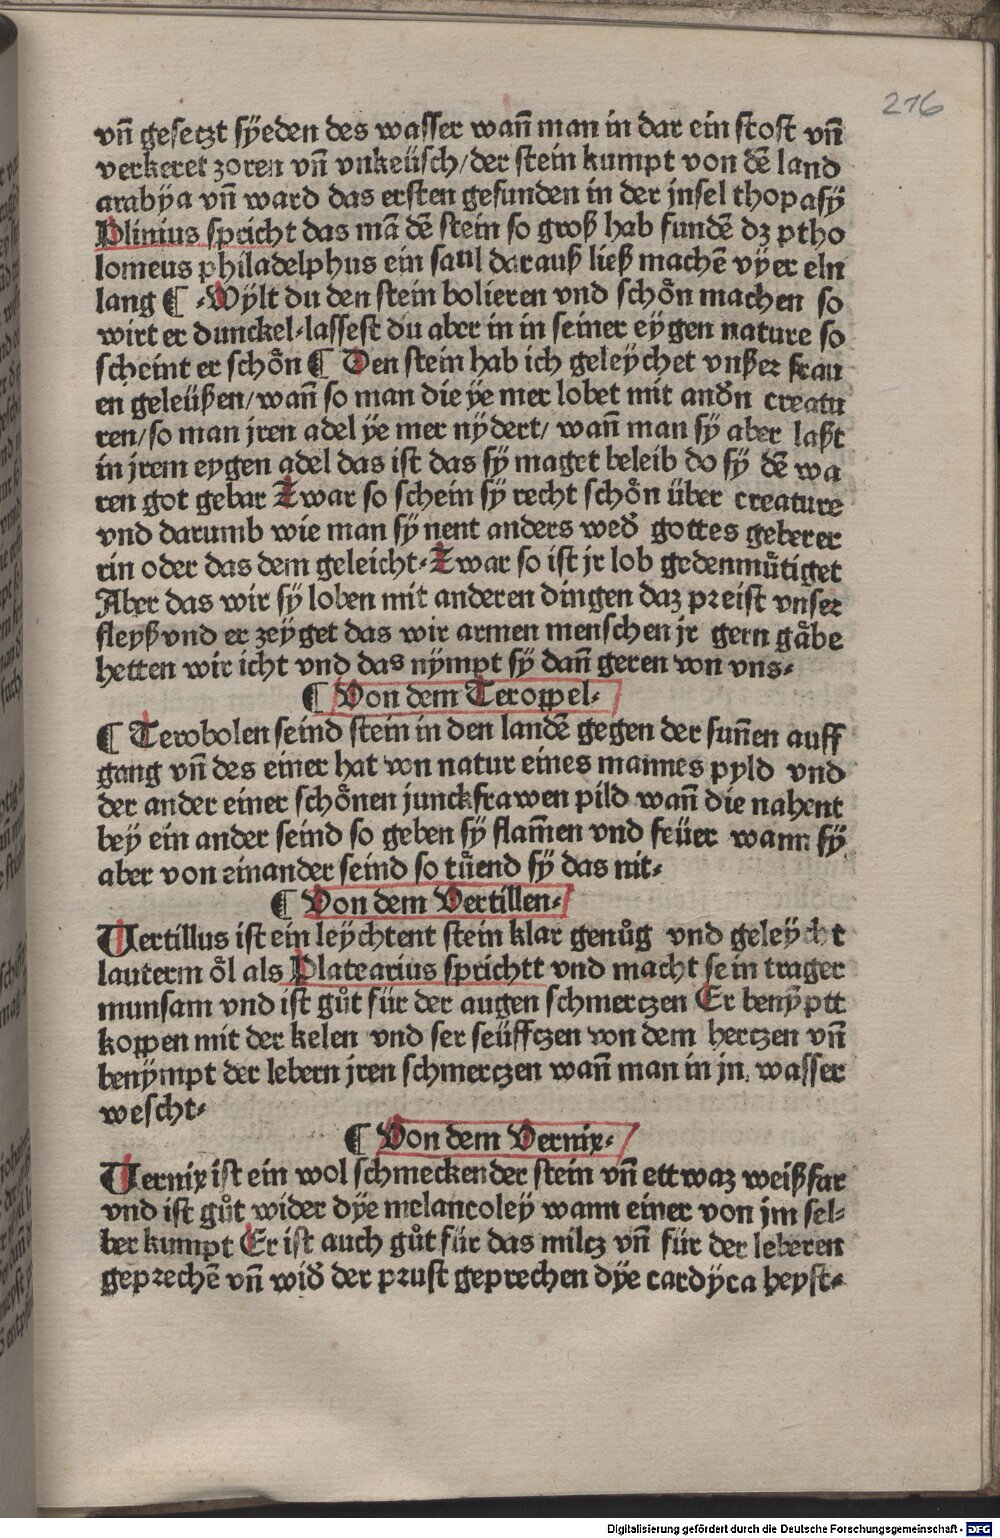 216
vn̄ gesetzt sÿeden des wasser wan̄ man in dar ein stost vn̄
verkeret zoren vn̄ vnkeüsch/der stein kumpt von dē land
arabÿa vn̄ ward das ersten gefunden in der jnsel thopasÿ
Plinius spricht das mā dē stein so groß hab fundē dz ptho
lomeus philadelphus ein saul darauß ließ machē vÿer eln
lang ¶ Wÿlt du den stein bolieren vnd schoͤn machen so
wirt er dunckel-lassest du aber in in seiner eygen nature so
scheint er schoͤn ¶ Den stein hab ich geleÿchet vnßer frau
en geleüßen/wan̄ so man die ÿe mer lobet mit andn̄ creatu
ren/so man jren adel ÿe mer nÿdert/ wan̄ man sÿ aber laßt
in jrem eygen adel das ist das sÿ maget beleib do sÿ dē wa
ren got gebar Zwar so schein sÿ recht schoͤn über creature
vnd darumb wie man sÿ nent anders wed̄ gottes geberer
rin oder das dem geleicht-Zwar so ist jr lob gedenmuͤtiget
Aber das wir sÿ loben mit anderen dingen daz preist vnser
fleyß vnd er zeÿget das wir armen menschen jr gern gaͤbe
hetten wir icht vnd das nÿmpt sÿ dan̄ geren von vns-
¶ Von dem Teroppel-
¶ Terobolen seind stein in den landē gegen der sun̄en auff
gang vn̄ des einer hat von natur eines mannes pyld vnd
der ander einer schoͤnen junckfrawen pild wan̄ die nahent
bey ein ander seind so geben sÿ flam̄en vnd feüer wann sÿ
aber von einander seind so tuͤend sÿ das nit-
¶ Von dem Vertillen-
Vertillus ist ein leÿchtent stein klar genůg vnd geleÿcht
lauterm oͤl als Platearius sprichtt vnd macht sein trager
munsam vnd ist gůt für der augen schmerczen Er benÿptt
koppen mit der kelen vnd ser seüffczen von dem herczen vn̄
benÿmpt der lebern jren schmerczen wan̄ man in jn wasser
wescht-
¶ Von dem Vernix-
Vernix ist ein wol schmeckender stein vn̄ ettwaz weißfar
vnd ist gůt wider dÿe melancoleÿ wann einer von jm sel-
ber kumpt Er ist auch gůt für das milcz vn̄ für der leberen
geprechē vn̄ wid̄ der prust geprechen dÿe cardÿca heyst-
Digitalisierung gefördert durch die Deutsche Forschungsgemeinschaft - DFG